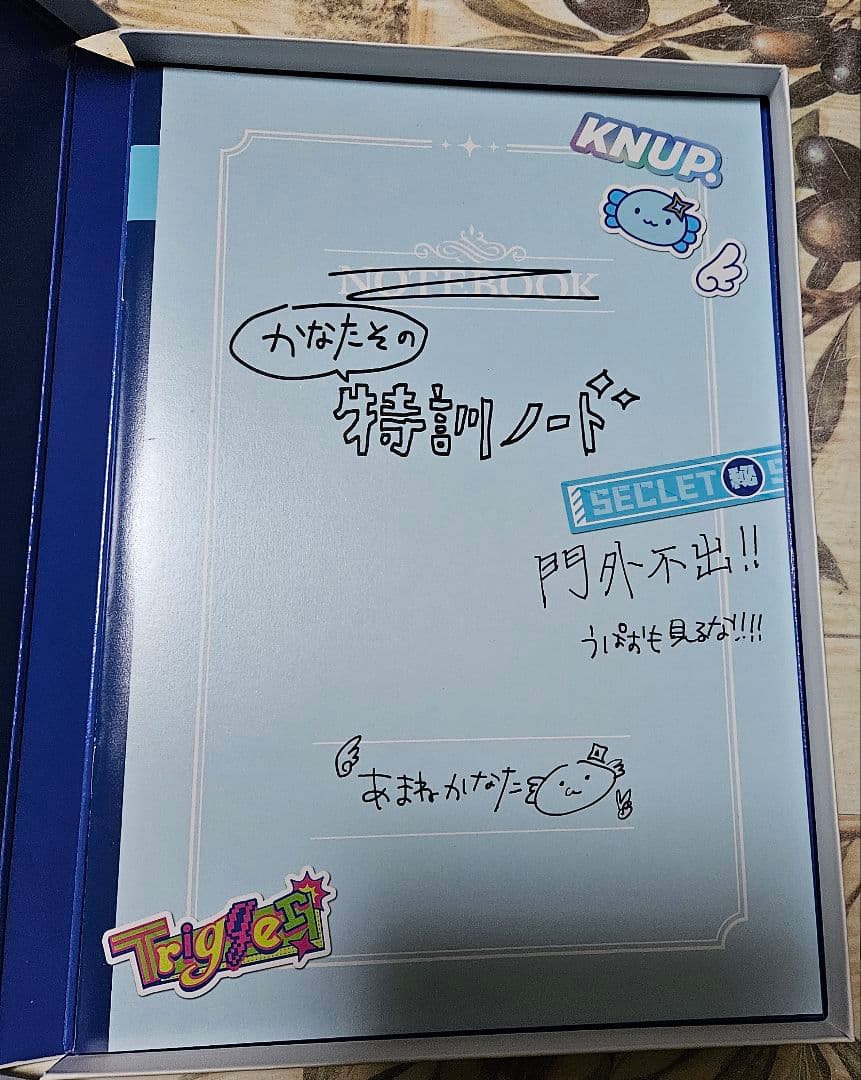 KNUP.
NOTEBOOK
かなたその
特訓ノート
SECLET 秘 S
門外不出!!
うぱおも見るな!!!!
あまねかなた
TriggeR